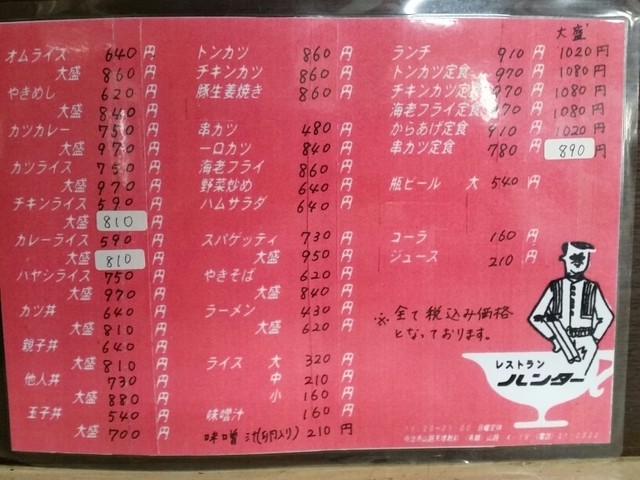 オムライス 640 円
大盛 860 円
やきめし 620 円
大盛 840 円
カツカレー 750 円
大盛 970 円
カツライス 750 円
大盛 970 円
チキンライス 590 円
大盛 810 円
カレーライス 590 円
大盛 810 円
ハヤシライス 750 円
大盛 970 円
カツ丼 640 円
大盛 810 円
親子丼 640 円
大盛 810 円
他人丼 730 円
大盛 880 円
玉子丼 540 円
大盛 700 円
トンカツ 860 円
チキンカツ 860 円
豚生姜焼き 860 円
串カツ 480 円
一口カツ 840 円
海老フライ 860 円
野菜炒め 640 円
ハムサラダ 640 円
スパゲッティ 730 円
大盛 950 円
やきそば 620 円
大盛 840 円
ラーメン 430 円
大盛 620 円
ライス 大 320 円
中 210 円
小 160 円
味噌汁 160 円
味噌汁(卵入り) 210 円
大盛
ランチ 910 円 1020 円
トンカツ定食 970 円 1080 円
チキンカツ定食 970 円 1080 円
海老フライ定食 970 円 1080 円
からあげ定食 910 円 1020 円
串カツ定食 780 円 890 円
瓶ビール 大 540 円
コーラ 160 円
ジュース 210 円
※全て税込み価格
となっております。
レストラン
ハンター